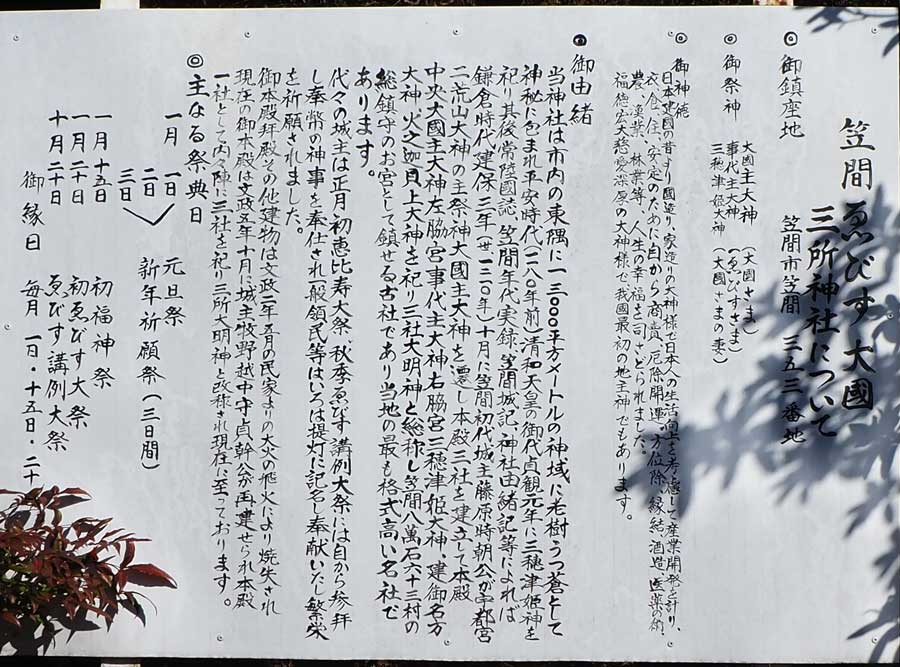 笠間ゑびす大國
三所神社について
◎御鎮座地 笠間市笠間三五三番地
◎御祭神 大國主大神(大国さま)
事代主大神(ゑびすさま)
三穂津姫大神(大國さまの妻)
◎御神徳
日本建国の昔より國造り、家造りの大神様で日本人の生活向上を考慮して産業開発を計り、
衣、食、住、安定のために自から商賣、厄除開運、方位除、縁結、酒造、医薬の術、
農、漁業、林業等、人生の幸福を司どられました。
福徳宏大慈愛深厚の大神様で我國最初の地主神でもあります。
●御由緒
当神社は市内の東隅に一三〇〇平方メートルの神域に老樹うっ蒼として
神秘に包まれ平安時代(一一八〇年前)清和天皇の御代貞観元年に三穂津姫神を
祀り其後常陸國誌、笠間年代実録、笠間城記、神社由緒記等によれば
鎌倉時代建保三年(一二三〇年)十月に笠間初代城主藤原時朝公が宇都宮
二荒山大神の主祭神大國主大神を遷し本殿三社を建立して本殿
中央大國主大神左脇宮事代主大神右脇宮三穂津姫大神、建御名方
大神、火之迦具土大神を祀り三社大明神と総称し笠間八萬石六十三村の
総鎮守のお宮として鎮せる古社であり当地の最も格式高い名社で
あります。
代々の城主は正月初恵比寿大祭、秋季ゑびす講例大祭には自から参拜
し奉幣の神事を奉仕され一般領民等はいろは提灯に記名し奉献いたし繁栄
を祈願されました。
御本殿拜殿その他建物は文政二年五月の民家よりの大火の飛火により焼失され
現在の御本殿は文政五年十月に城主牧野越中守貞幹公が再建せられ本殿
一社として内々陣に三社を祀り三所大明神と改称され現在に至っております。
◎主なる祭典日
一月一日 元旦祭
二日 新年祈願祭(三日間)
三日
一月十五日 初福神祭
一月二十日 初ゑびす大祭
十月二十日 ゑびす講例大祭
御縁日 毎月一日・十五日・二十